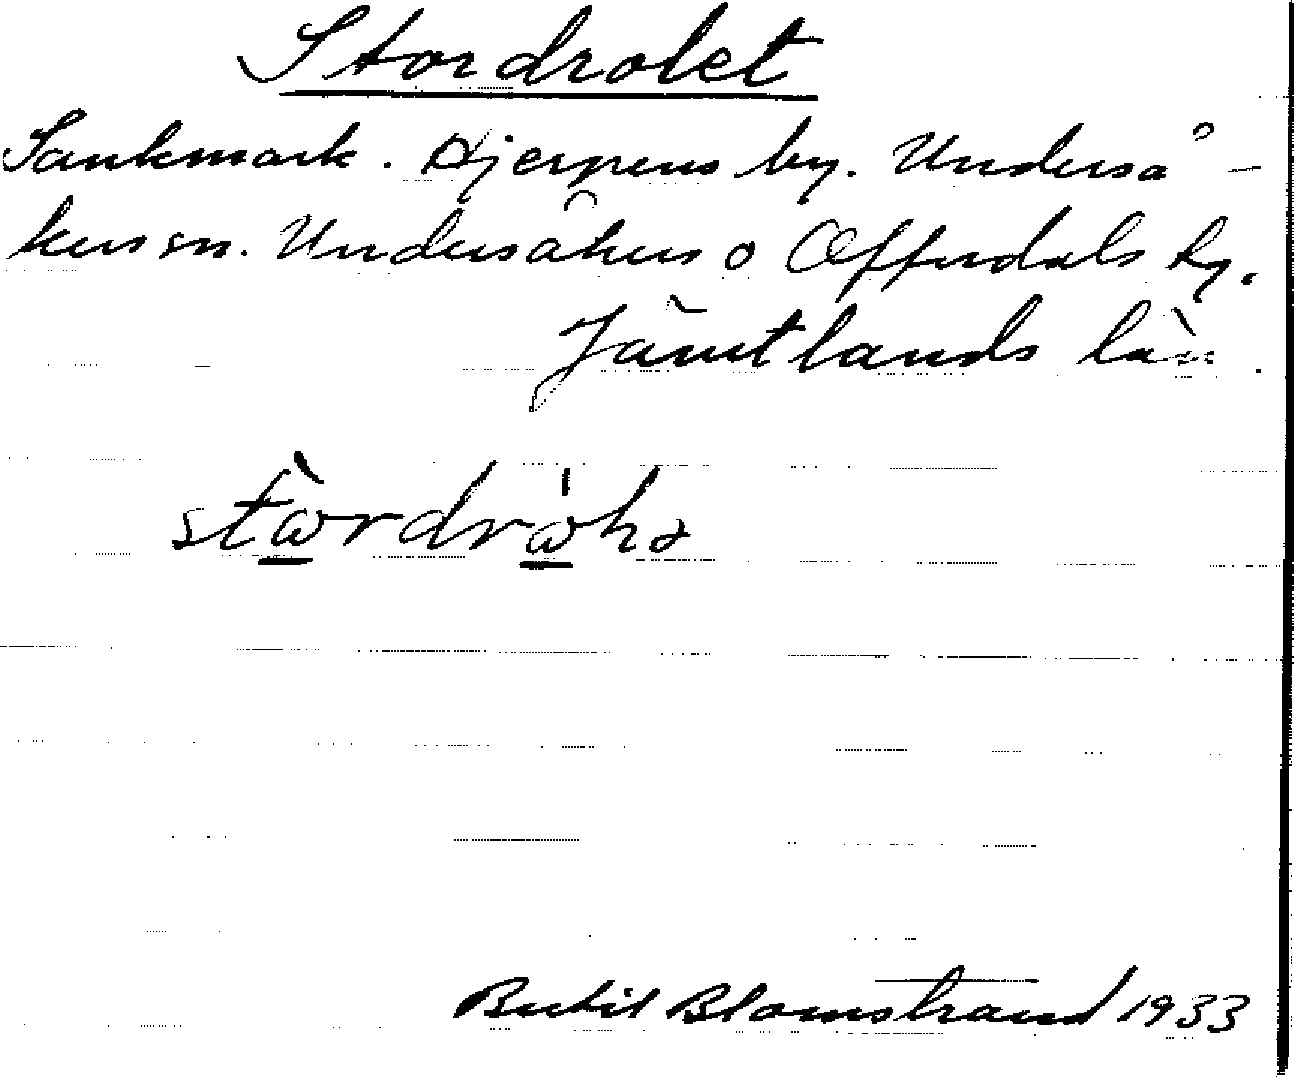 Stordrolet
Sankmark. Hjerpens by. Underså-
kers sn. Undersåkers o Offerdals tg.
Jämtlands län.
stωrdrωhə
Bertil Blomstrand 1933